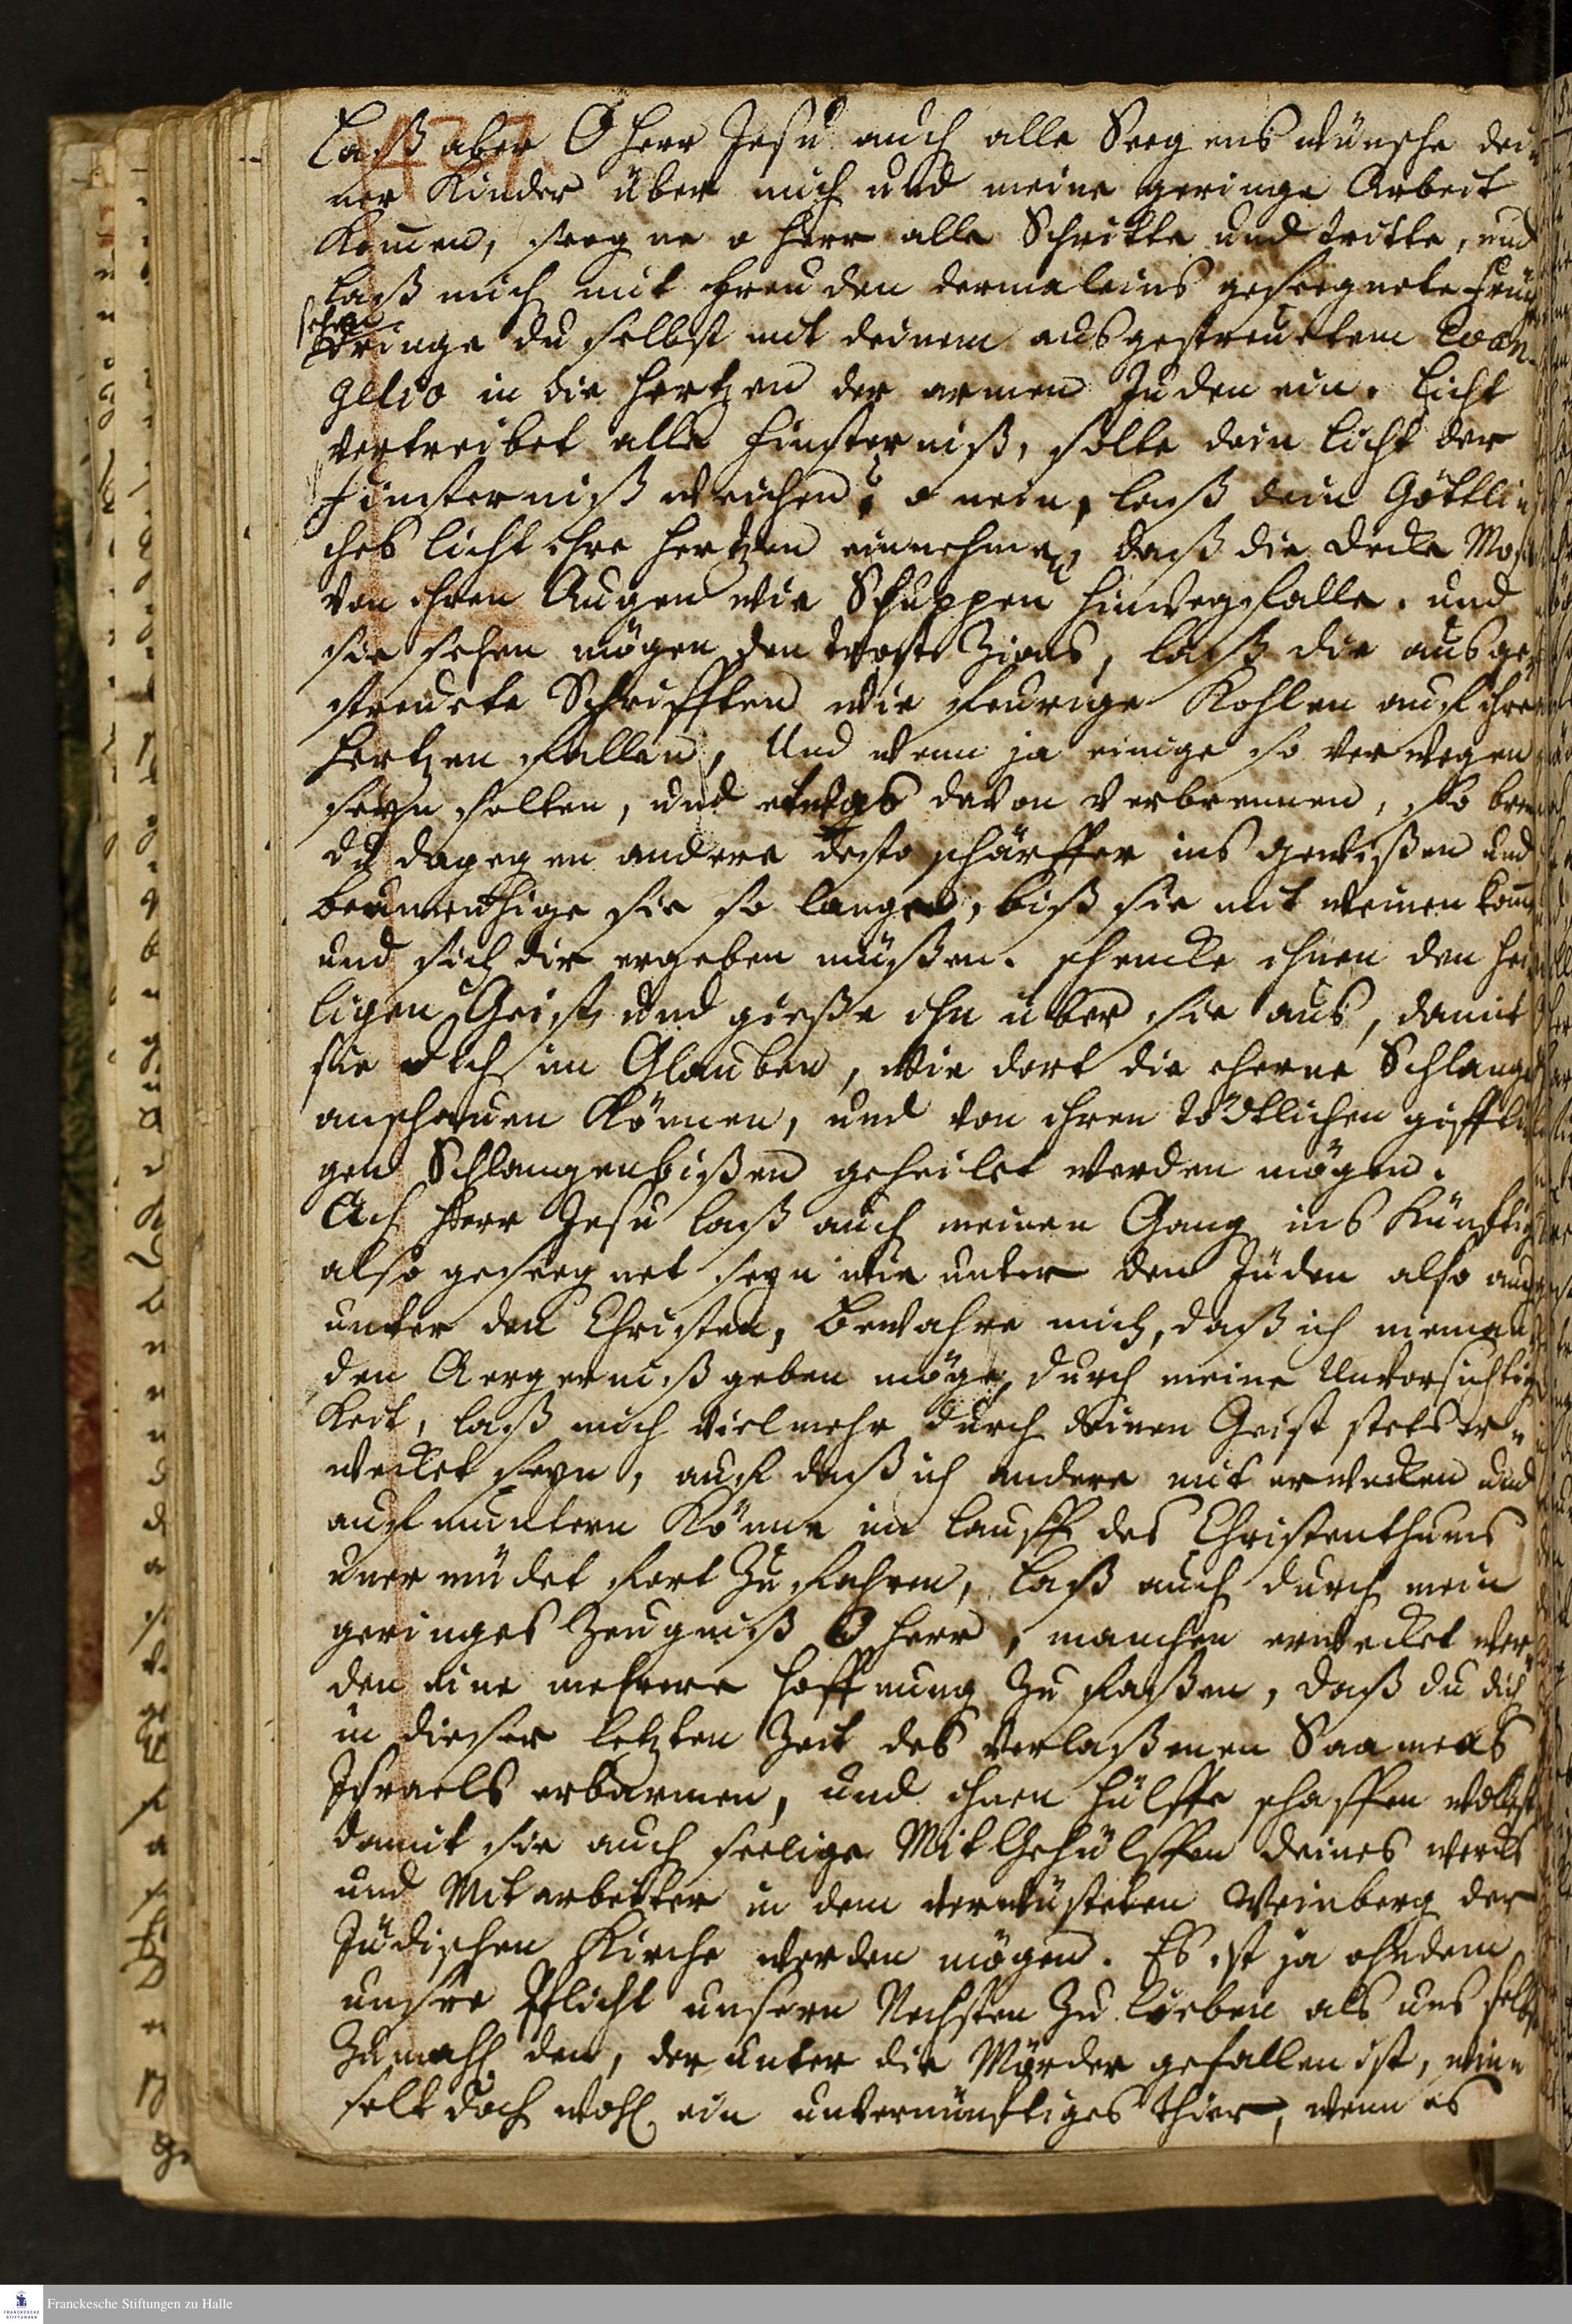 Laß aber O Herr Jesu auch alle Seegens wünsche dei-
ner Kinder über mich und meine geringe Arbeit
kommen, seegne o Herr alle Schritte und tritte, und
laß mich mit Freuden dermaleins geseegnete Früch
sehen
dringe du selbst mit deinem ausgestreuetem Evan-
gelio in die Hertzen der armen Juden ein. Licht
vertreibet alle Finsterniß, solte dein Licht der
Finsterniß weichen? o nein, laß dein Göttli-
ches Licht ihre Hertzen einnehmen, daß die Decke Mosis
von ihren Augen wie Schuppen hinwegfalle. und
sie sehen mögen den trost Zions, laß die ausge-
streuete Schrifften wie feurige Kohlen auf ihre
Hertzen fallen, Und wenn ja einige so verwegen
seyn solten, und etwas davon verbrennen, so brenne
du dagegen andere desto schärffer ins gewißen und
beunruhige sie so lange, biß sie mit weinen kommen
und sich dir ergeben müßen. schencke ihnen den hei-
ligen Geist und gieße ihn über sie aus, damit
sie dich im Glauben, wie dort die eherne Schlange
anschauen können, und von ihren tödtlichen giffti-
gen Schlangenbißen geheilet werden mögen.
Ach Herr Jesu laß auch meinen Gang ins künfftige
also geseegnet seyn wie unter den Juden also auch
unter den Christen, bewahre mich, daß ich nieman-
den Aergerniß geben möge, durch meine Unvorsichtig-
keit, laß mich vielmehr durch deinen Geist stets er-
wecket seyn, auf daß ich andere mit erwecken und
aufmuntern könne im Lauff des Christenthums
unermüdet fort zu fahren, laß auch durch mein
geringes Zeugniß O Herr, manchen erwecket wer-
den eine mehrere Hoffnung zu faßen, daß du dich
in dieser letzten Zeit des verlaßenen Saamens
Israels erbarmen, und ihnen Hülffe schaffen wollest
damit sie auch seelige Mit Gehülffen deines wercks
und Mitarbeiter in dem verwüsteten Weinberg der
Jüdischen Kirche werden mögen. Es ist ja ohndem
unsre Pflicht unsern Nechsten zu lieben als uns selbst
Zumahl den, der unter die Mörder gefallen ist, win-
selt doch wohl ein unvernünftiges thier, wenn es
Franckesche Stiftungen zu Halle